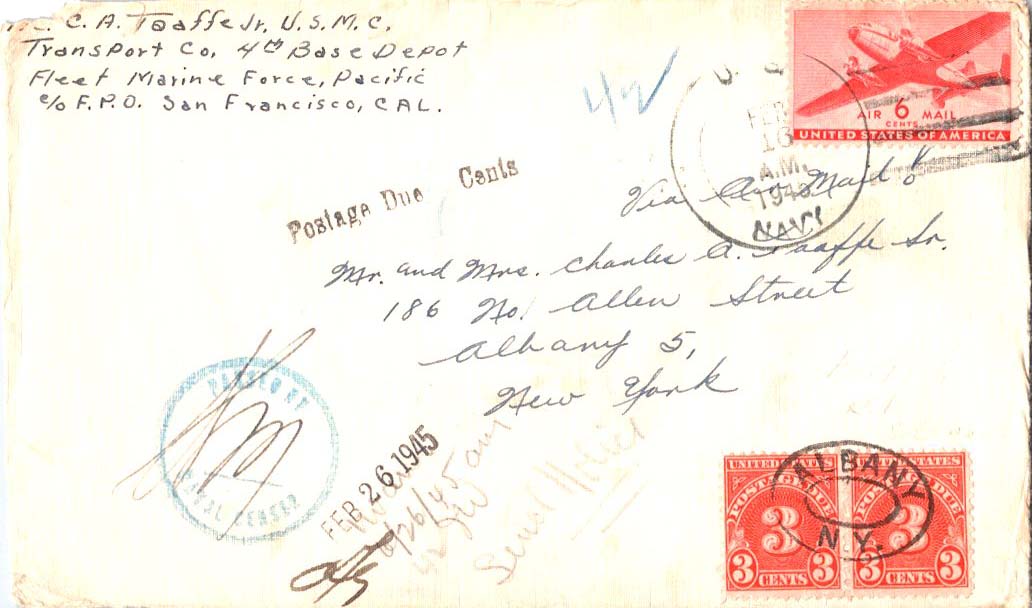 C. A. Taaffe Jr. U.S.M.C.
Transport Co, 4th Base Depot
Fleet Marine Force, Pacific
c/o F.P.O. San Francisco, CAL.
AIR 6 MAIL
CENTS
UNITED STATES OF AMERICA
U. S.
FEB
16
A.M.
1945
NAVY
Postage Due Cents
Via Air Mail
Mr. and Mrs. Charles A. Taaffe Sr.
186 No. Allen Street
Albany 5,
New York
PASSED BY
NAVAL CENSOR
FEB 26 1945
2/26/45
UNITED STATES
POSTAGE DUE
3
3 CENTS 3
STATES
POSTAGE DUE
3
3 CENTS 3
ALBANY
N.Y.